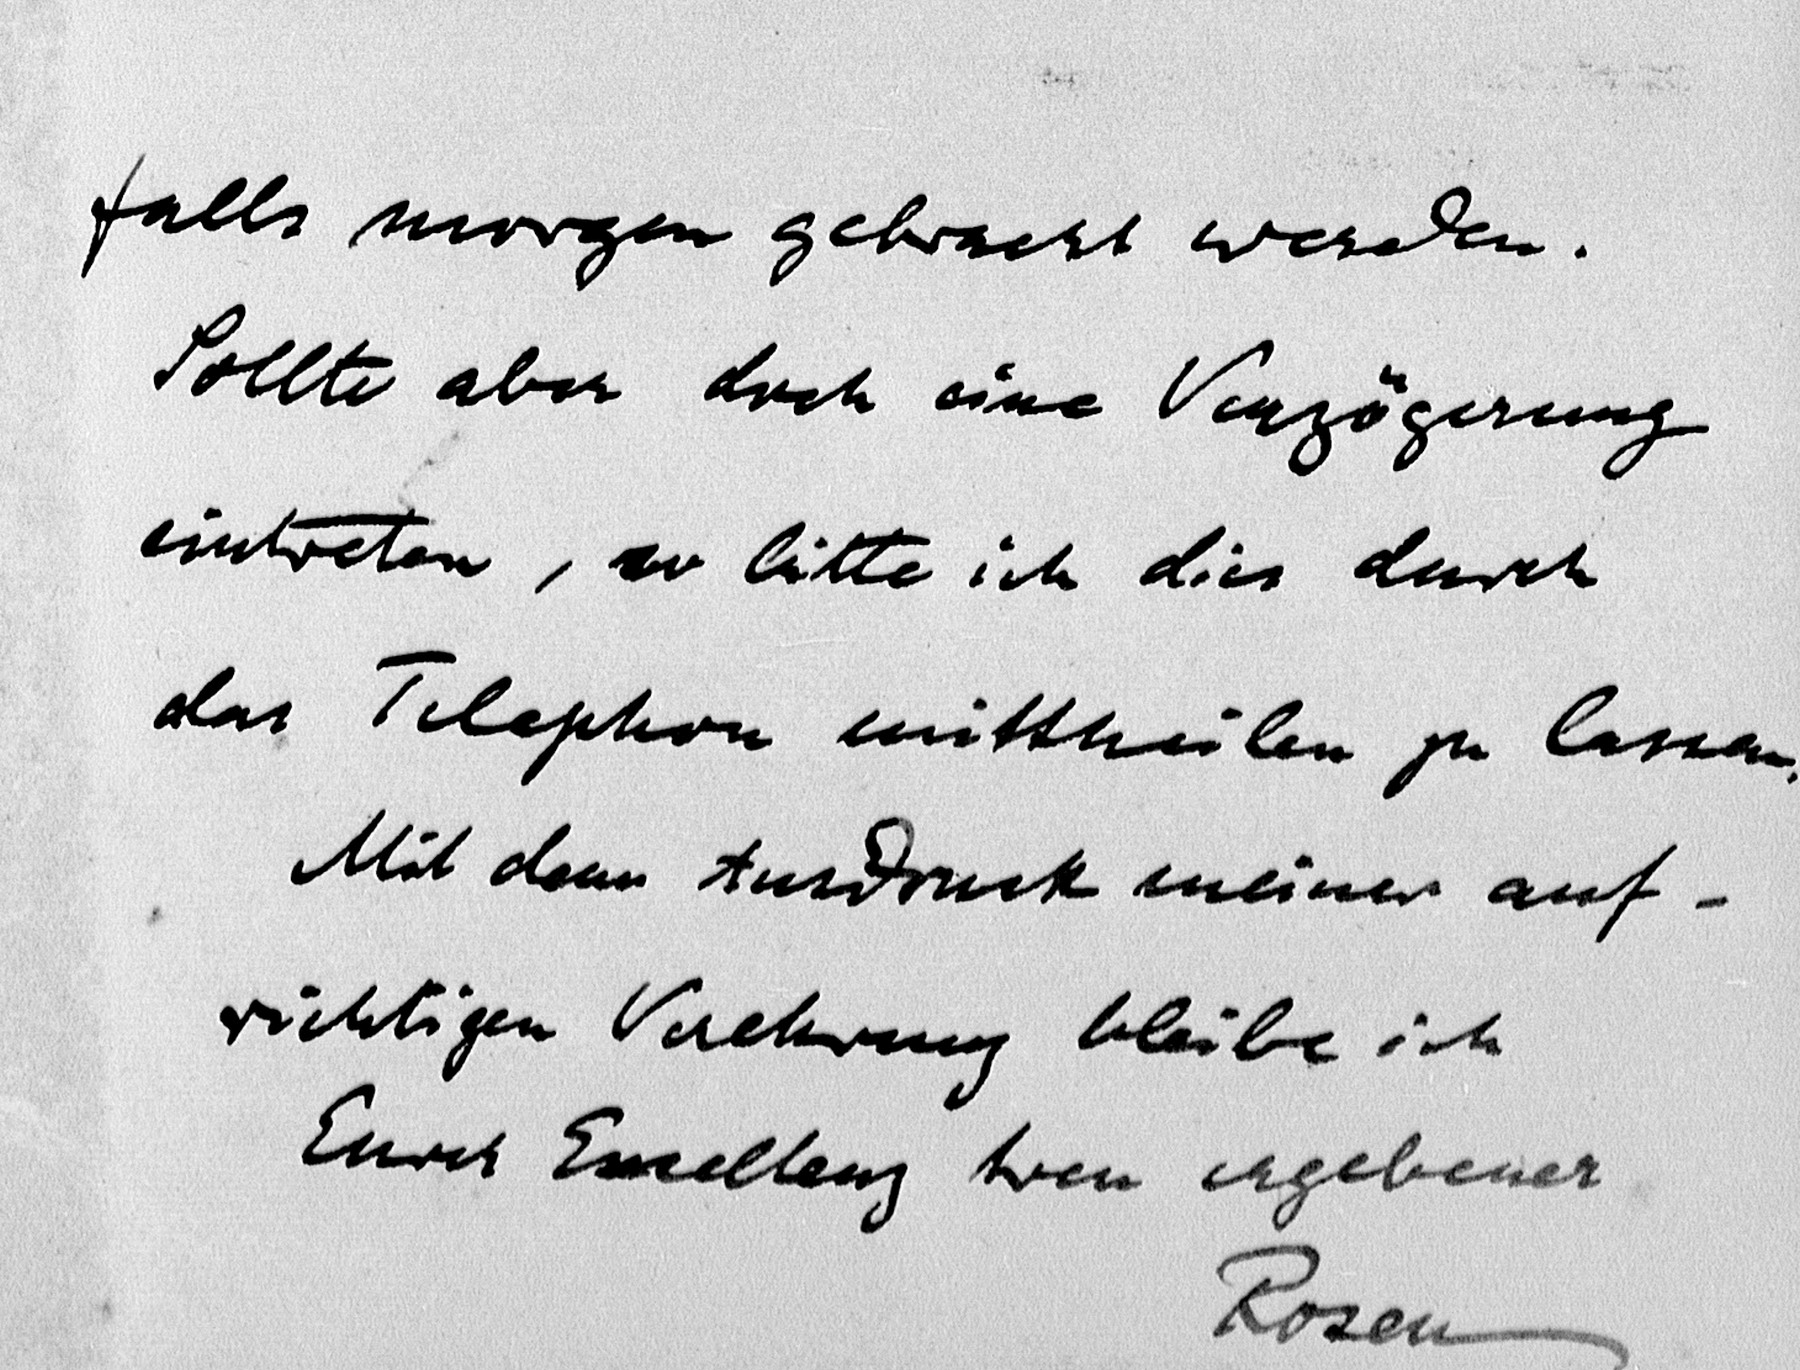 falls morgen gebracht werden.
Sollte aber doch eine Verzögerung
eintreten, so bitte ich dies durch
das Telephon mittheilen zu lassen.
Mit dem Ausdruck meiner auf-
richtigen Verehrung bleibe ich
Eurer Excellenz treu ergebener
Rosen